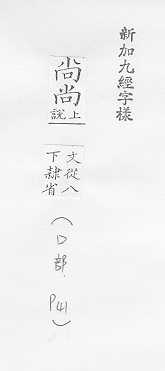 新加九經字樣
尚尚
上說
文從八
下隷省
(口部.P41)